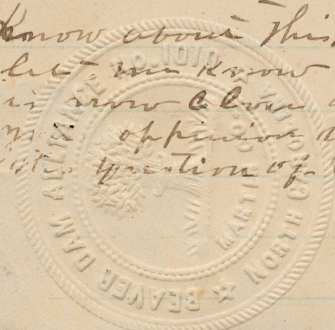 know about this
let me know
is now
oppinion
question of
BEAVER DAM ALLIANCE NO. 1010
MARTIN CO.
NORTH CAROLINA